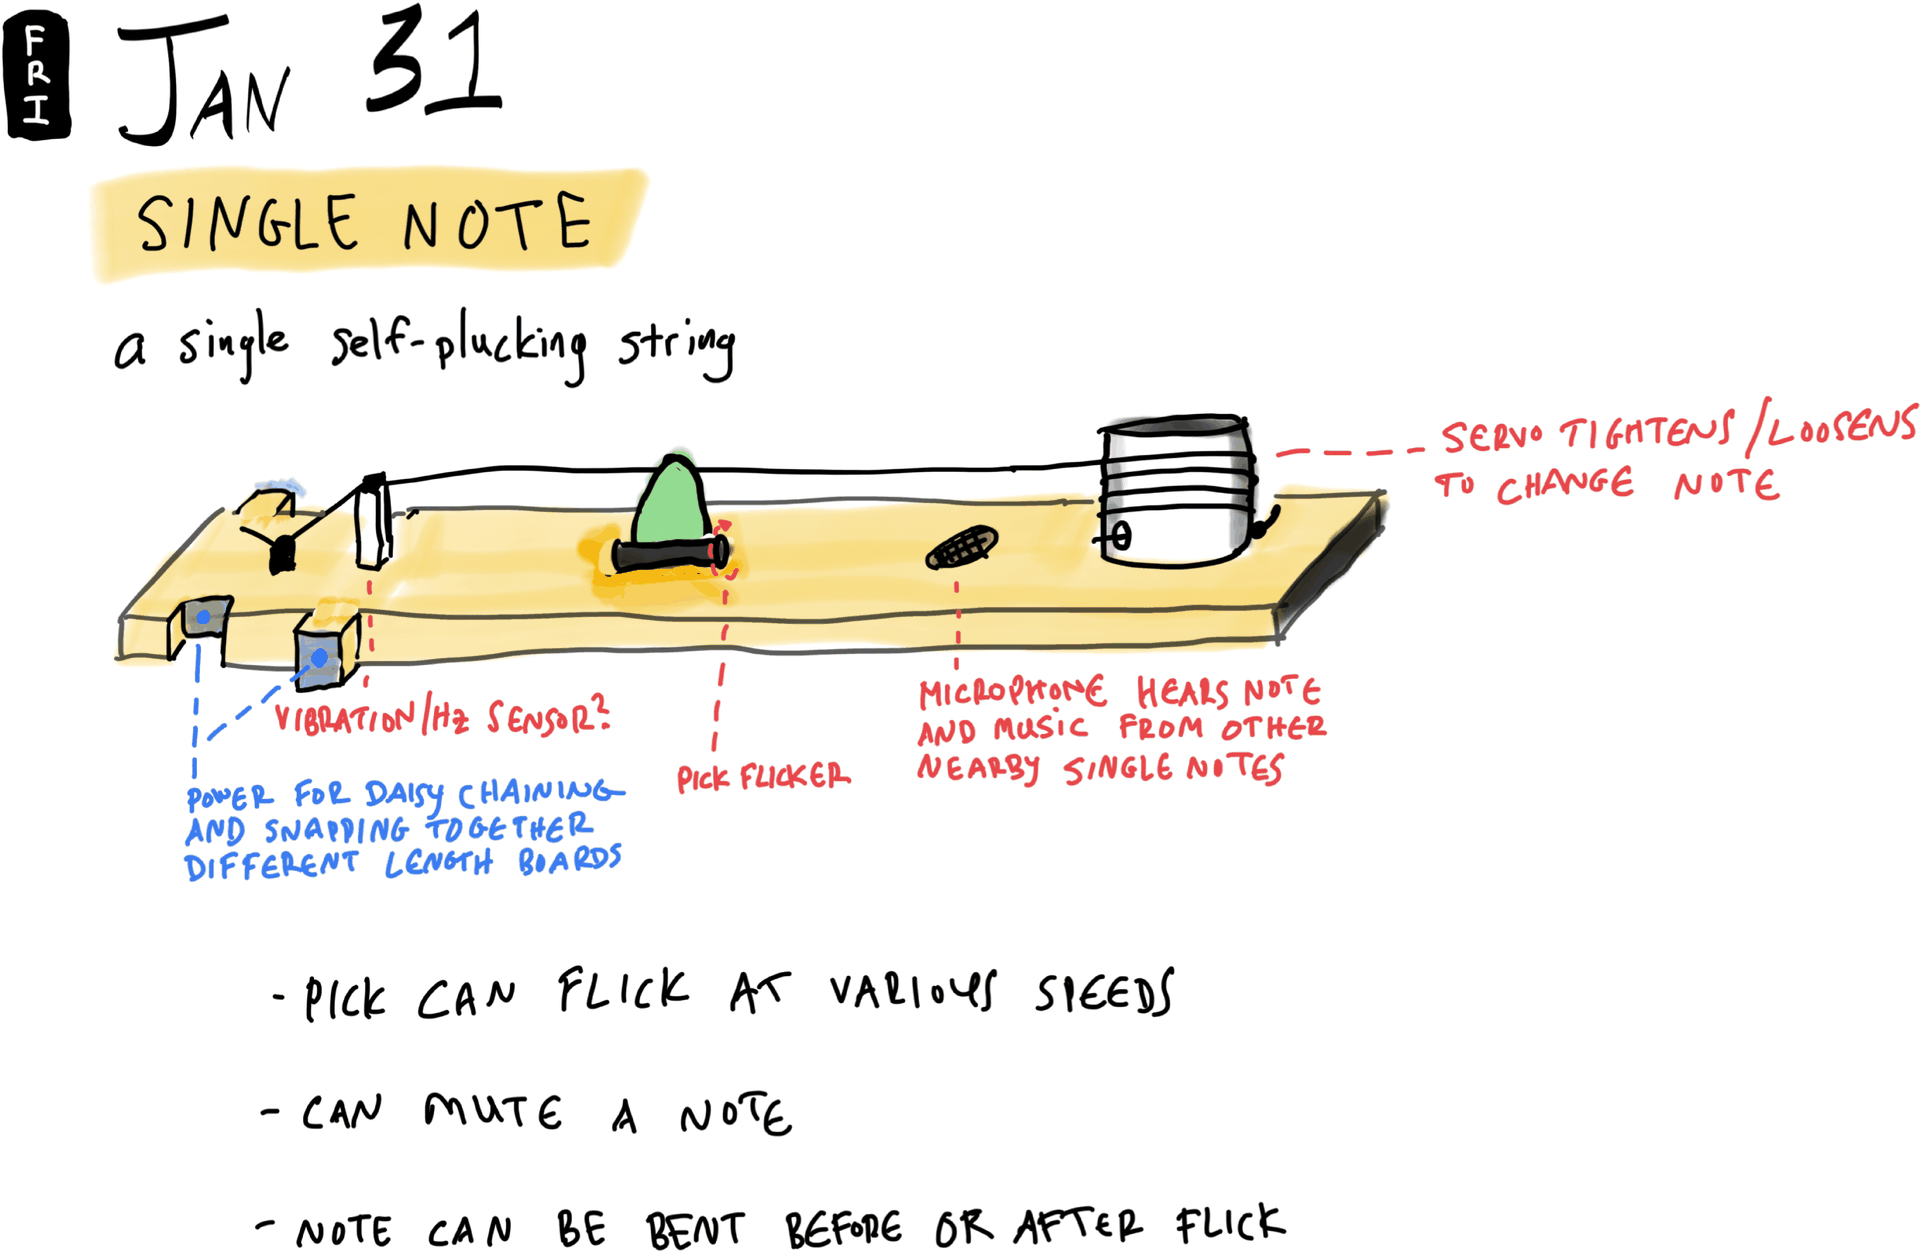 FRI
JAN 31
SINGLE NOTE
a single self-plucking string
SERVO TIGHTENS/LOOSENS
TO CHANGE NOTE
VIBRATION/HZ SENSOR?
MICROPHONE HEARS NOTE
AND MUSIC FROM OTHER
NEARBY SINGLE NOTES
PICK FLICKER
POWER FOR DAISY CHAINING
AND SNAPPING TOGETHER
DIFFERENT LENGTH BOARDS
- PICK CAN FLICK AT VARIOUS SPEEDS
- CAN MUTE A NOTE
- NOTE CAN BE BENT BEFORE OR AFTER FLICK